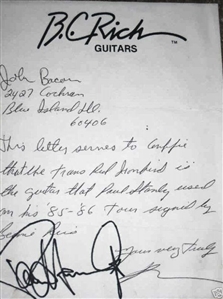 B.C. Rich ™
GUITARS
John Bacon
2427 Cochran
Blue Island Ill.
60406
This letter serves to
that the Trans Red Ironbird is
the guitar that Paul Stanley used
on his '85-'86 Tour signed by
Bernie Rico
yours very truly